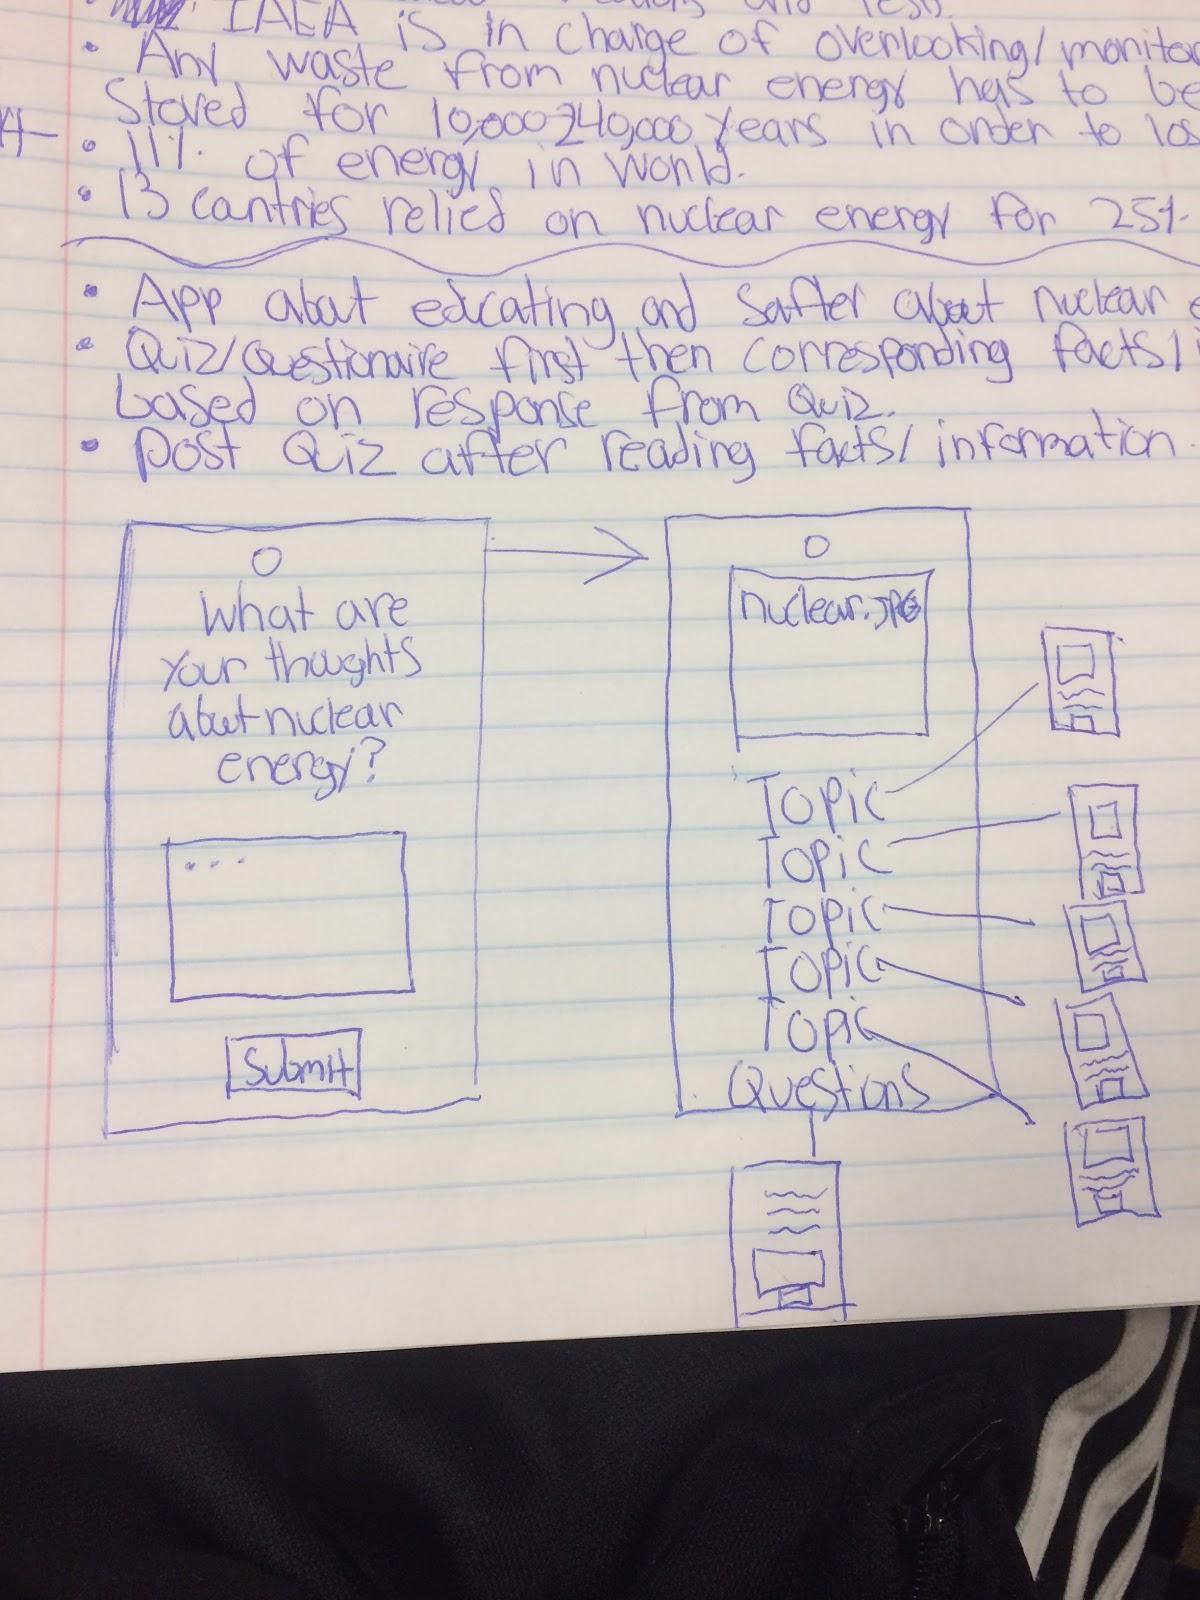 IAEA is in charge of overlooking/monitor
• Any waste from nuclear energy has to be
Stored for 10,000 240,000 years in order to los
• 11% of energy in world.
• 13 cantries relied on nuclear energy for 25%
• App abat educating and about nuclear e
• Quiz/Questionaire first then corresponding facts/
based on response from Quiz.
• post Quiz after reading facts/information.
What are
your thoughts
about nuclear
energy?
...
Submit
nuclear.JPG
Topic
Topic
Topic
Topic
Topic
Questions